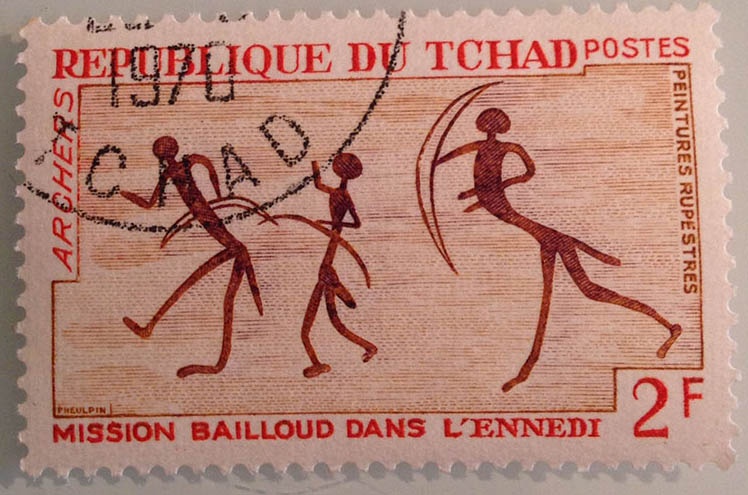 REPUBLIQUE DU TCHAD POSTES
1970
CHAD
ARCHERS
PEINTURES RUPESTRES
PHEULPIN
2F
MISSION BAILLOUD DANS L'ENNEDI